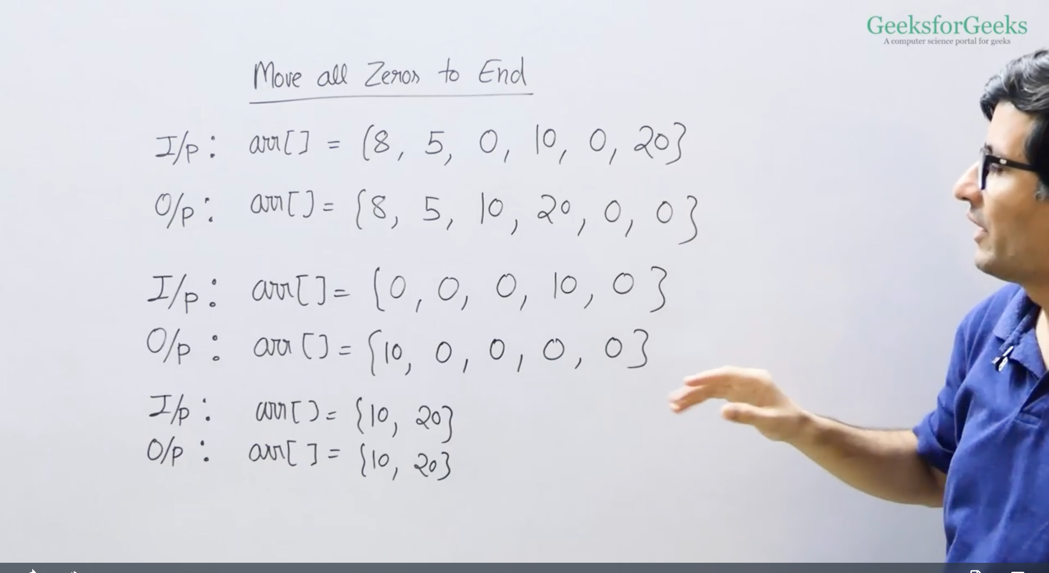 GeeksforGeeks
A computer science portal for geeks
Move all Zeros to End
I/p: arr[] = {8, 5, 0, 10, 0, 20}
O/p: arr[] = {8, 5, 10, 20, 0, 0}
I/p: arr[] = {0, 0, 0, 10, 0}
O/p: arr[] = {10, 0, 0, 0, 0}
I/p: arr[] = {10, 20}
O/p: arr[] = {10, 20}